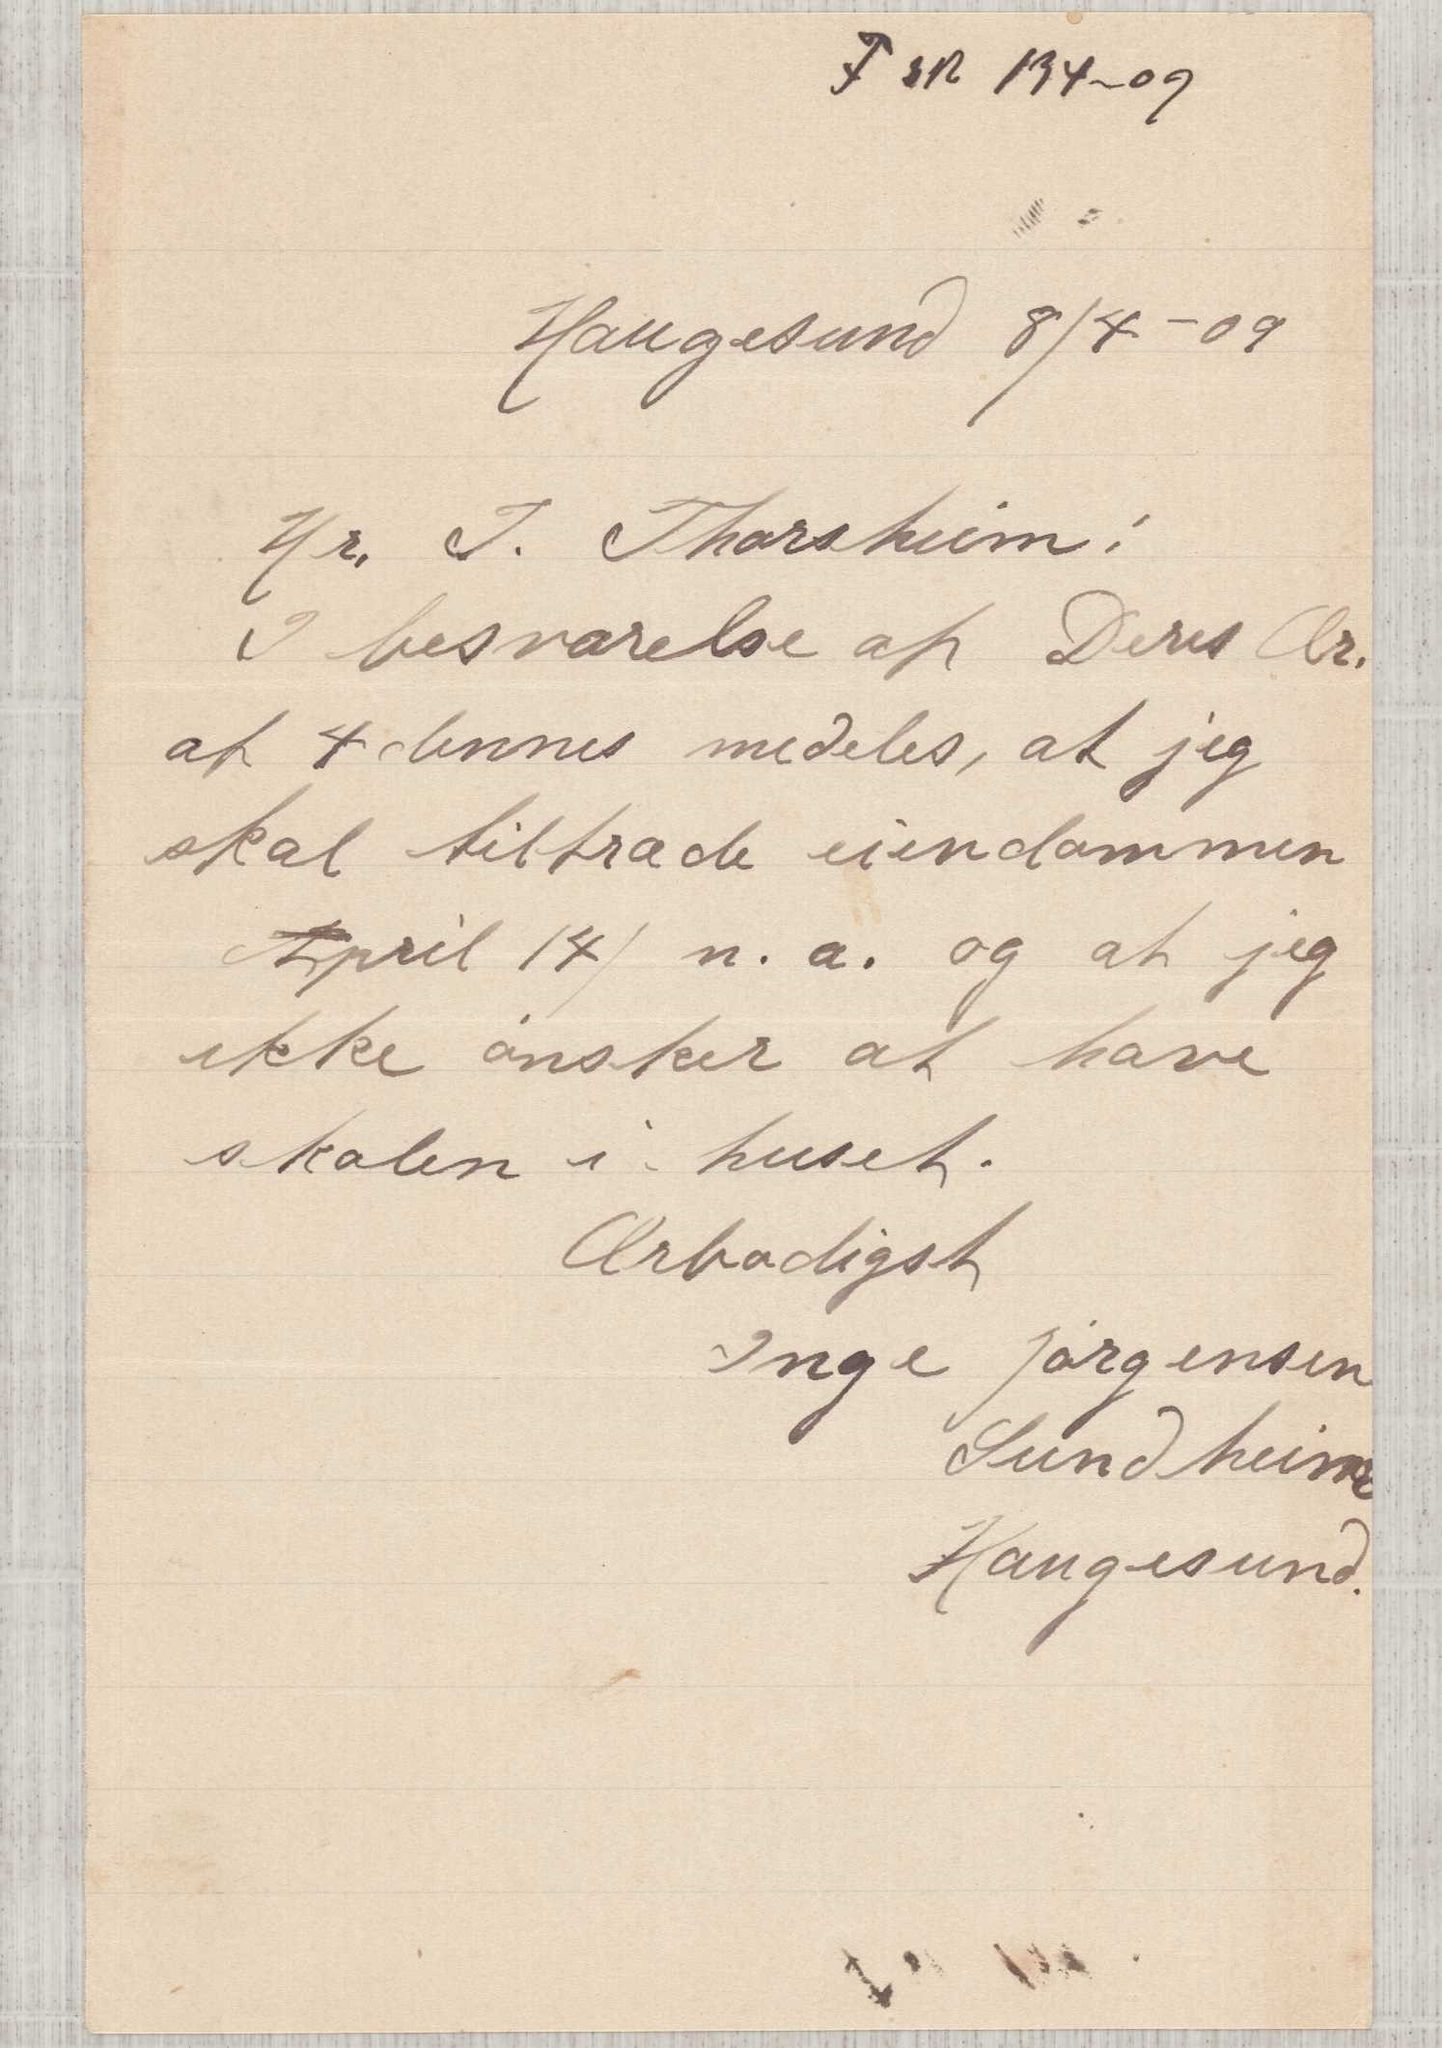 F SR 13/4-09
Haugesund 8/4 - 09
Hr. T. Thorsheim!
I besvarelse af Deres Ær.
af 4 dennes medeles, at jeg
skal tiltræde eiendommen
April 14/ n. a. og at jeg
ikke ønsker at have
skolen i huset.
Ærbødigst
Inge Jørgensen
Sundheim
Haugesund.